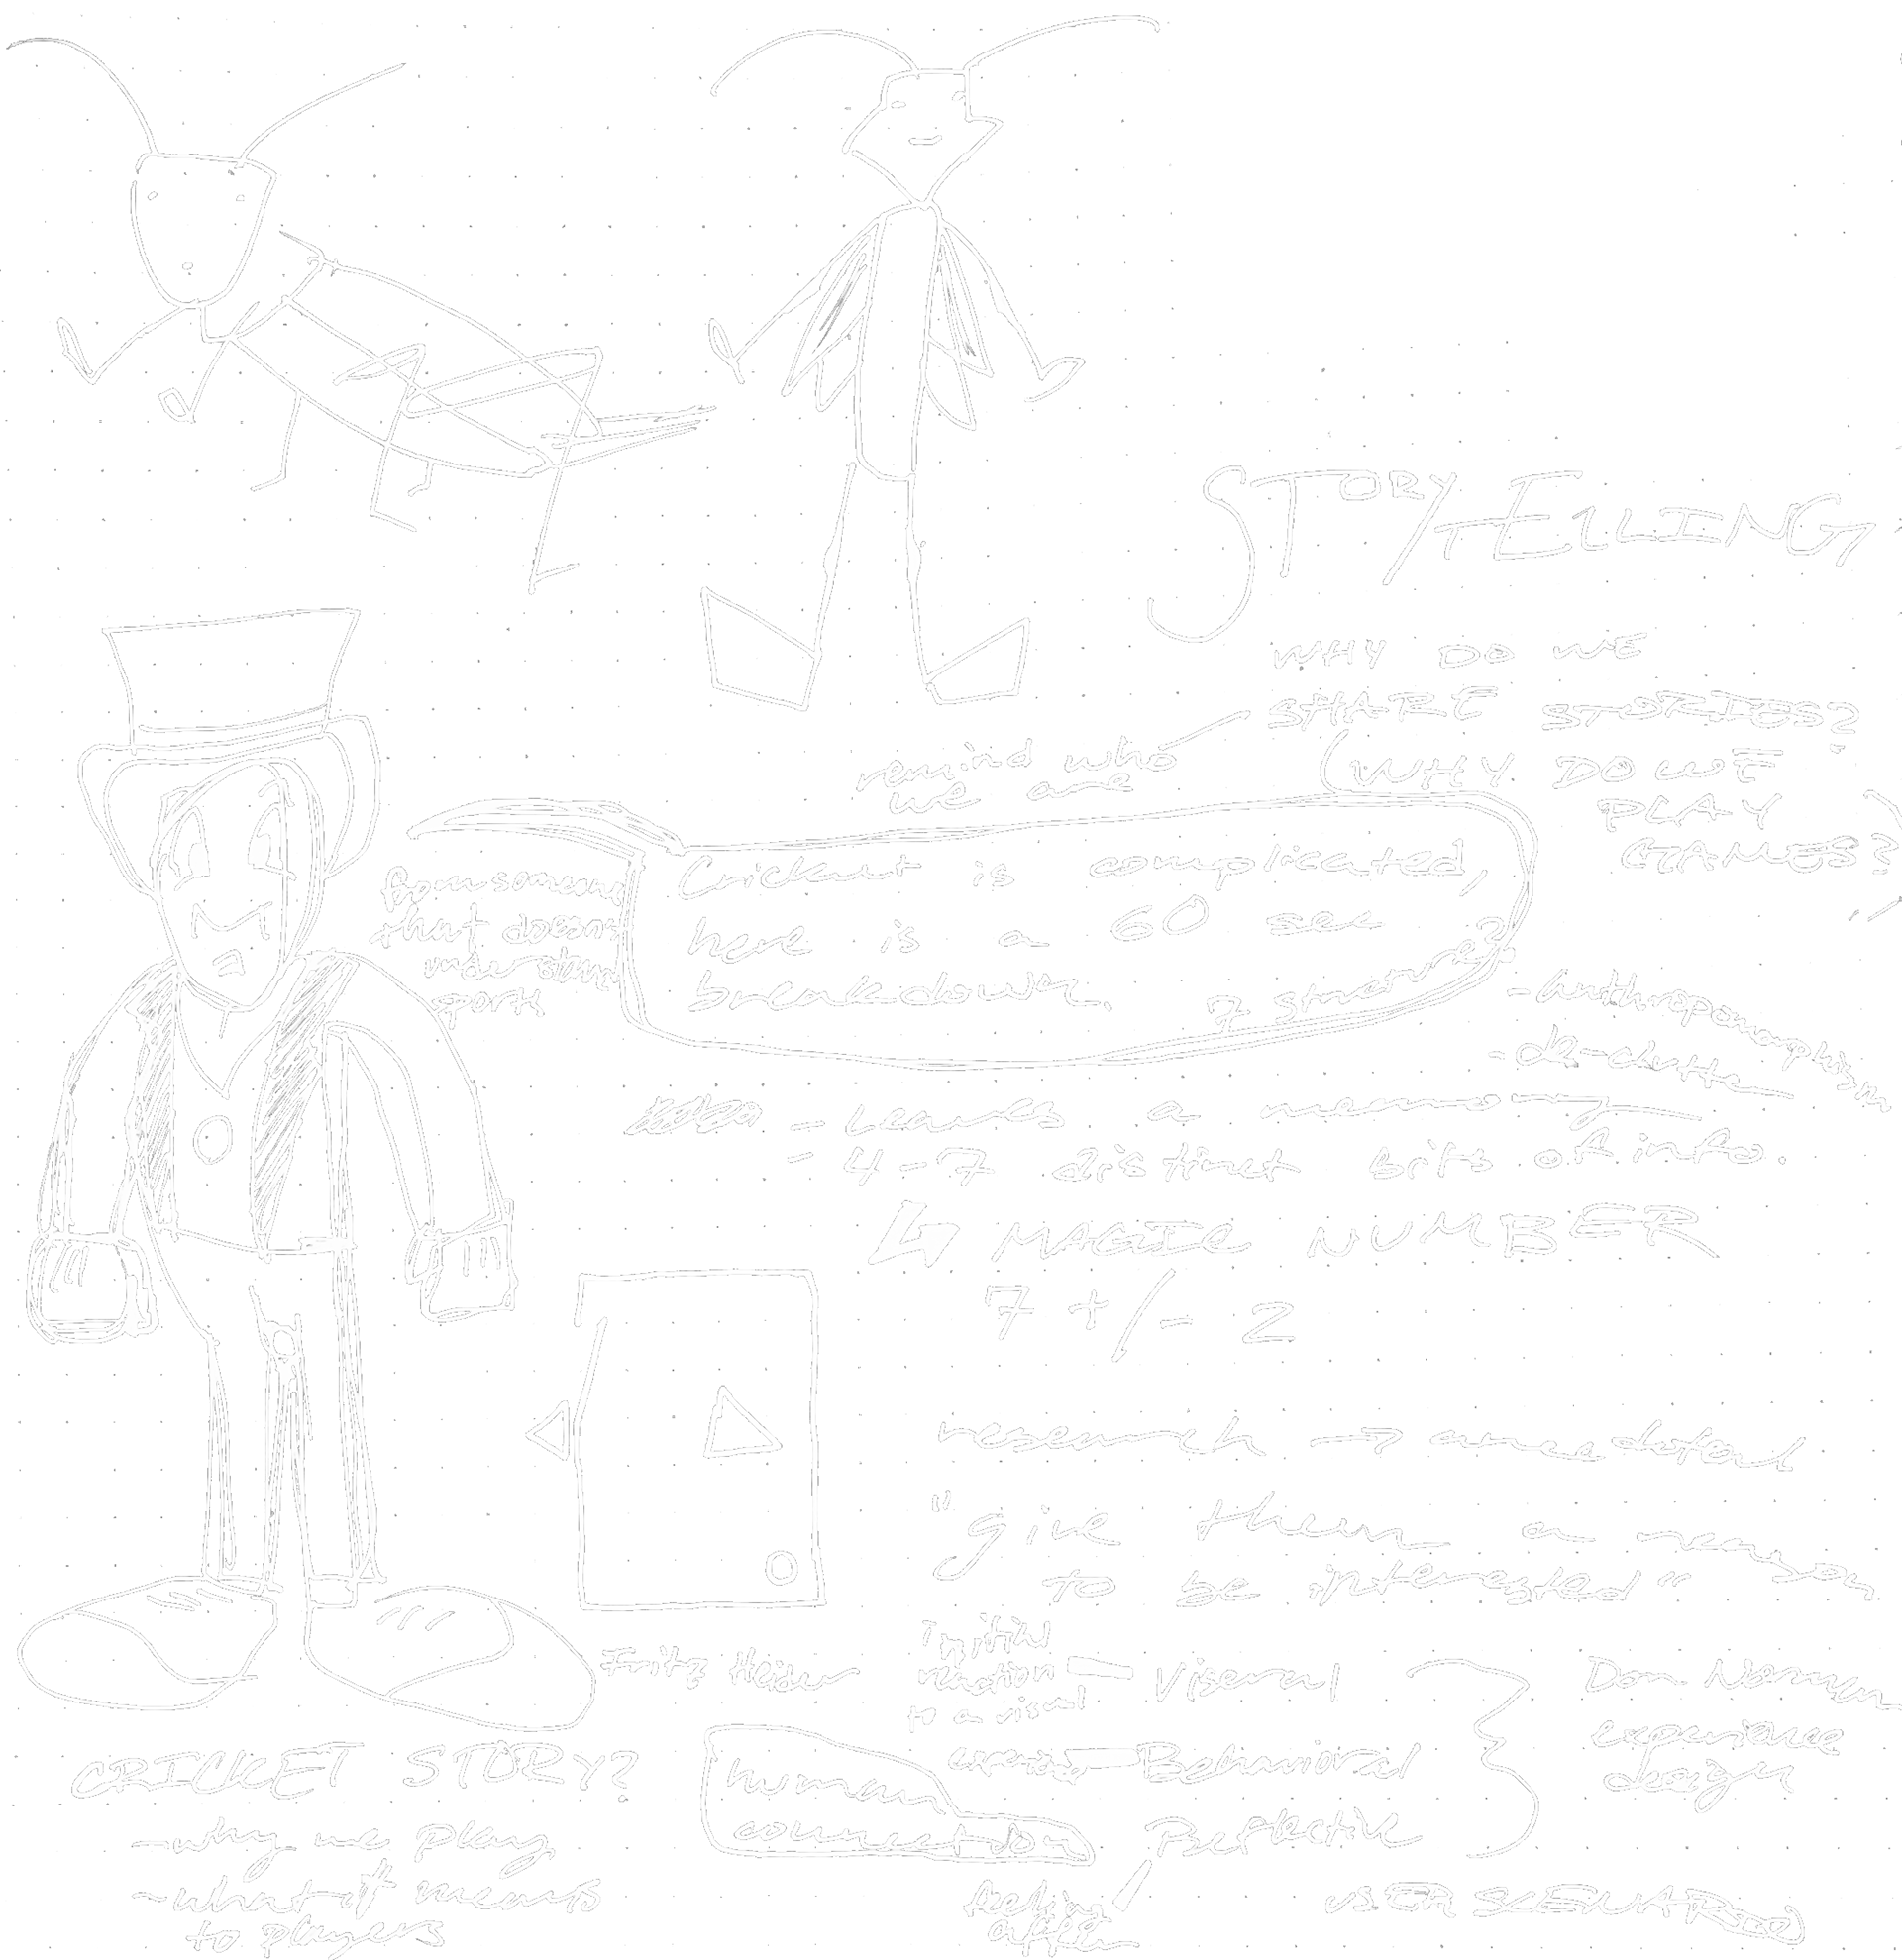 STORYTELLING
WHY DO WE
SHARE STORIES?
remind who
we are
WHY DO WE
PLAY
GAMES?
from someone
that doesn't
understand
sports
Cricket is complicated,
here is a 60 sec
breakdown.
? structure?
- anthropomorphism
- de-clutter
- Leaves a memory
- 4-7 distinct bits of info.
MAGIC NUMBER
7 +/- 2
research → anecdotal
"give them a reason
to be interested"
Fritz Heider
Initial
reaction
to a visual
Viseral
Behavioral
Reflective
Don Norman
experience
design
human
connection
feeling
after
USER SCENARIO
CRICKET STORY?
- why we play
- what it means
to players